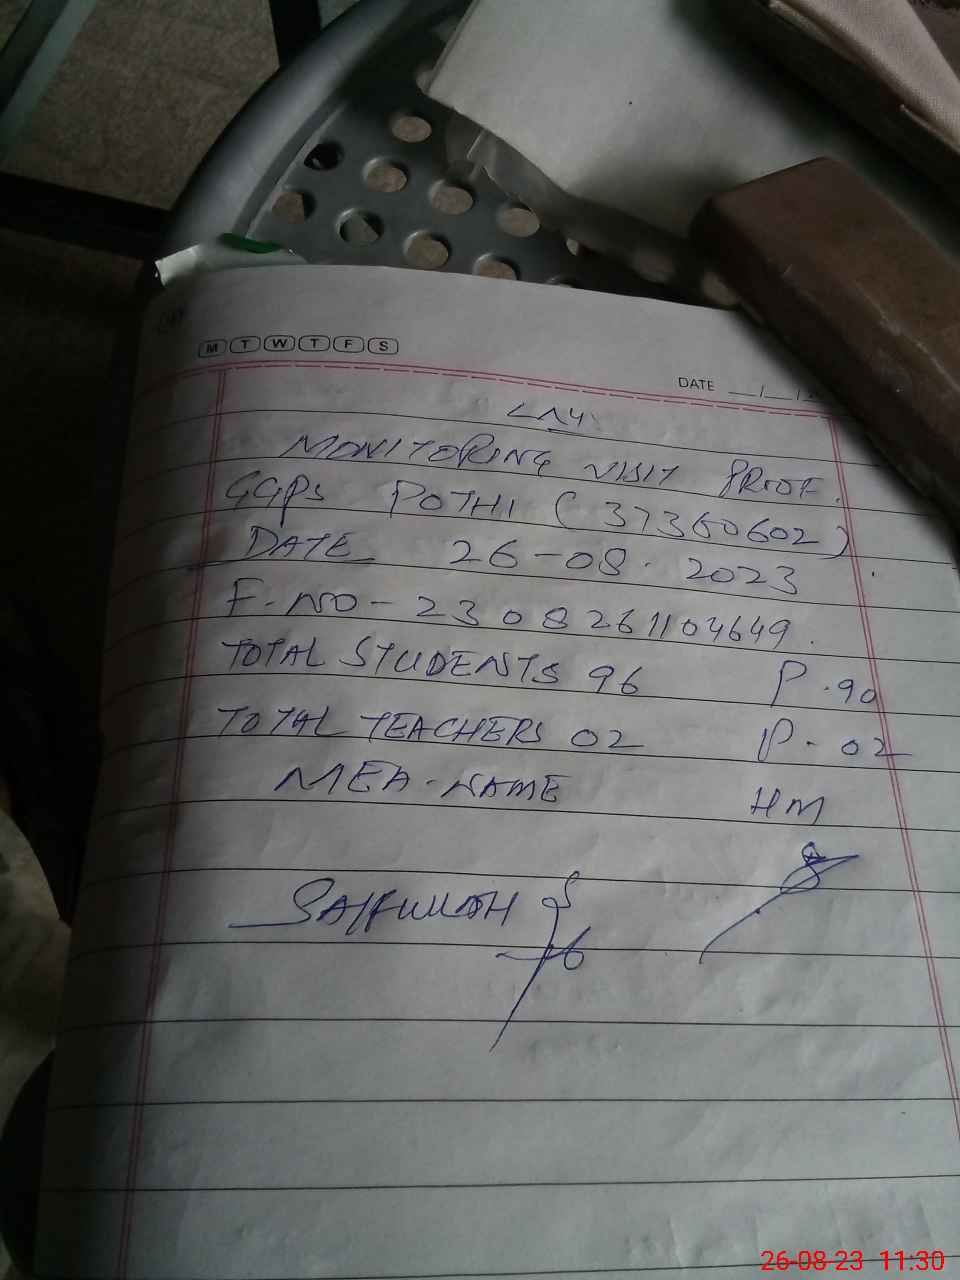 M T W T F S
DATE __/__/
MONITORING VISIT PROOF.
GGPS POTHI (37360602)
DATE 26-08-2023
F-NO-2308261104649.
TOTAL STUDENTS 96 P.90
TOTAL TEACHERS 02 P-02
MEA-NAME HM
SAIFULLAH
26-08-23 11:30